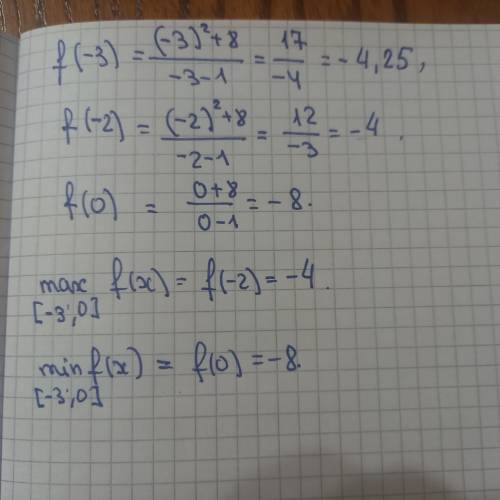 f(-3) = \frac{(-3)^2+8}{-3-1} = \frac{17}{-4} = -4,25,
f(-2) = \frac{(-2)^2+8}{-2-1} = \frac{12}{-3} = -4.
f(0) = \frac{0+8}{0-1} = -8.
max f(x) = f(-2) = -4.
[-3;0]
min f(x) = f(0) = -8.
[-3;0]